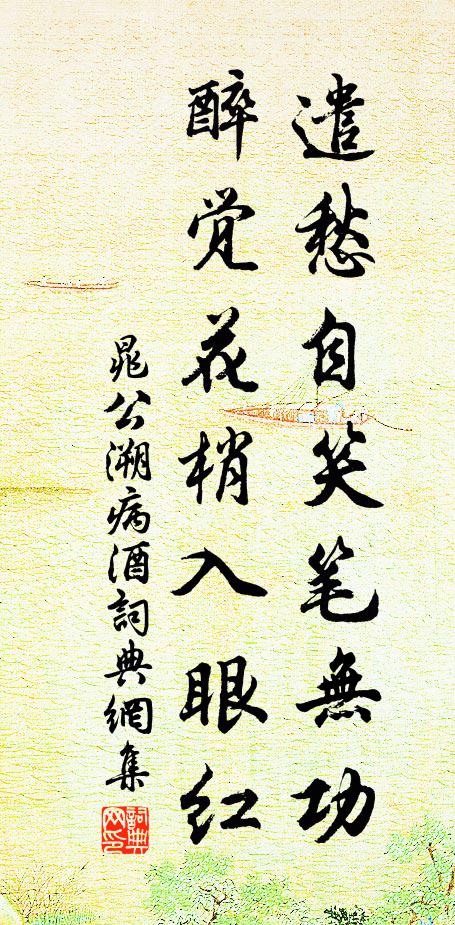 遣愁自笑笔無功
醉觉花梢入眼红
晁公溯病酒詞典網集
詞典網印